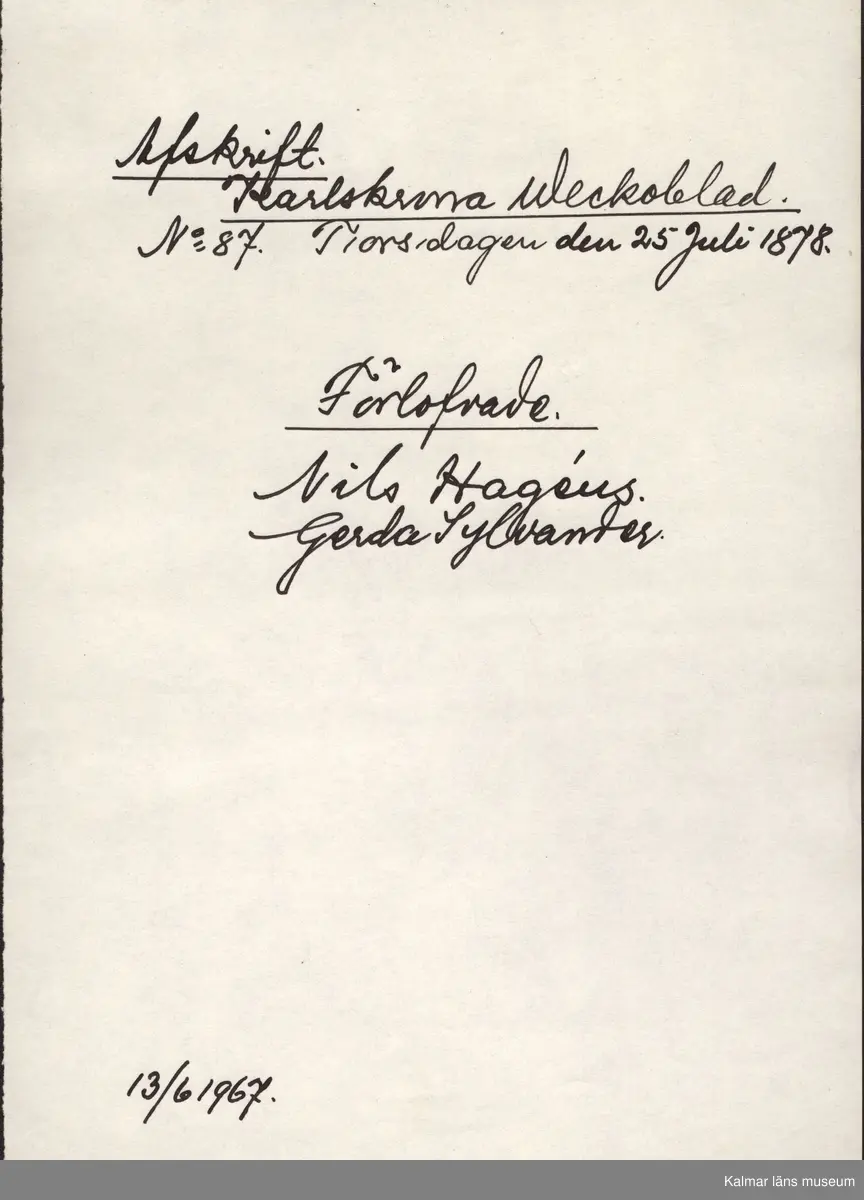 Afskrift.
Karlskrona Weckoblad.
No= 87. Torsdagen den 25 Juli 1878.
Förlofvade.
Nils Hagéus.
Gerda Sylvander.
13/6 1967.
Kalmar läns museum